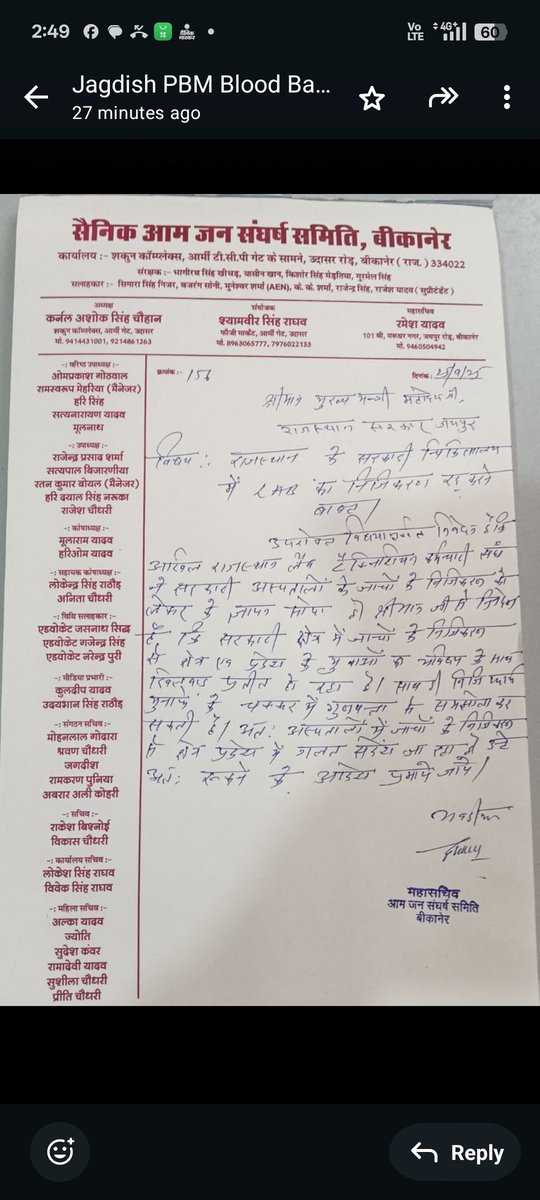 2:49
Vo
LTE
4G+
60
Jagdish PBM Blood Ba...
27 minutes ago
सैनिक आम जन संघर्ष समिति, बीकानेर
कार्यालय :- शकुन कॉम्प्लेक्स, आर्मी टी.सी.पी गेट के सामने, उदासर रोड़, बीकानेर ( राज. ) 334022
संरक्षक :- भागीरथ सिंह खीचड़, यासीन खान, किशोर सिंह मेड़तिया, गुरमेल सिंह
सलाहकार :- सिगारा सिंह निजर, बजरंग सोनी, मुनेश्वर शर्मा (AEN), के. के. शर्मा, राजेन्द्र सिंह, राजेश यादव ( सुप्रीटेडेंट )
अध्यक्ष
कर्नल अशोक सिंह चौहान
शकुन कॉम्पलेक्स, आर्मी गेट, उदासर
मो. 9414431001, 9214861263
संयोजक
श्यामवीर सिंह राघव
फौजी मार्केट, आर्मी गेट, उदासर
मो. 8963065777, 7976022133
महासचिव
रमेश यादव
101 बी, मरूधर नगर, जयपुर रोड़, बीकानेर
मो. 9460504942
-: वरिष्ठ उपाध्यक्ष :-
ओमप्रकाश गोठवाल
रामस्वरूप मेहरिया (मैनेजर)
हरि सिंह
सत्यनारायण यादव
मूलनाथ
-: उपाध्यक्ष :-
राजेन्द्र प्रसाद शर्मा
सत्यपाल बिजारणीया
रतन कुमार बोयल (मैनेजर)
हरि दयाल सिंह नरूका
राजेश चौधरी
-: कोषाध्यक्ष :-
मूलाराम यादव
हरिओम यादव
-: सहायक कोषाध्यक्ष :-
लोकेन्द्र सिंह राठौड़
अनिता चौधरी
-: विधि सलाहकार :-
एडवोकेट जसनाथ सिद्ध
एडवोकेट गजेन्द्र सिंह
एडवोकेट नरेन्द्र पुरी
-: मीडिया प्रभारी :-
कुलदीप यादव
उदयभान सिंह राठौड़
-: संगठन सचिव :-
मोहनलाल गोदारा
श्रवण चौधरी
जगदीश
रामकरण पुनिया
अबरार अली कोहरी
-: सचिव :-
राकेश बिश्नोई
विकास चौधरी
-: कार्यालय सचिव :-
लोकेश सिंह राघव
विवेक सिंह राघव
-: महिला सचिव :-
अल्का यादव
ज्योति
सुदेश कंवर
रामादेवी यादव
सुशीला चौधरी
प्रीति चौधरी
क्रमांक :- 156
दिनांक :-
श्रीमान मुख्य मन्त्री महोदय जी,
राजस्थान सरकार जयपुर
विषय :- राजस्थान के सरकारी चिकित्सालय
में LAB का निजिकरण रद्द करने
बाबत।
उपरोक्त विषयान्तर्गत निवेदन है कि
अखिल राजस्थान लैब टेक्निशियन कर्मचारी संघ
ने सरकारी अस्पतालों के जाचों के निजिकरण को
लेकर के ज्ञापन सोपा श्रीमान जी से निवेदन
है कि सरकारी क्षेत्र में जाचों के निजिकरण
से क्षेत्र एवं प्रदेश के युवाओं के भविष्य के साथ
खिलवाड प्रतीत हो रहा है। साथ ही निजि
मुनाफे के चक्कर में गुणवत्ता से समझोता कर
सकती है। अतः अस्पतालों में जाचों के निजिकरण
से क्षेत्र प्रदेश में गलत संदेश जा रहा है इसे
अतः रूकवाने के आदेश फ़रमावे।
महासचिव
आम जन संघर्ष समिति
बीकानेर
Reply